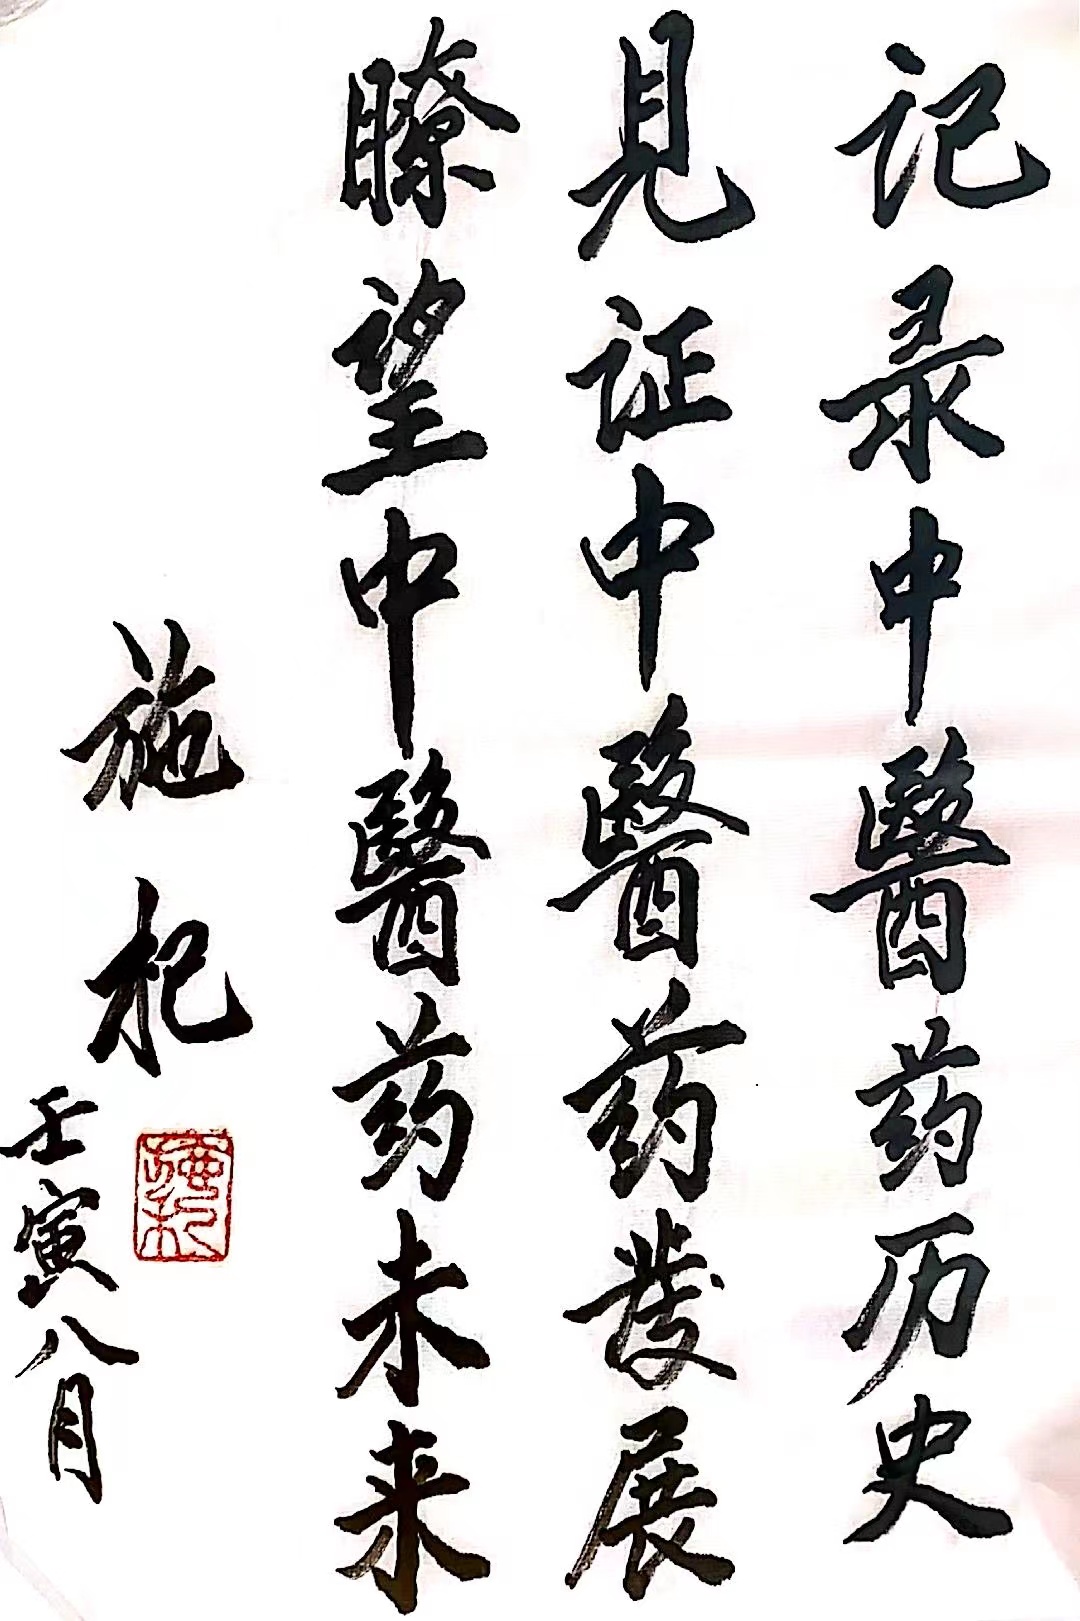 记录中醫药历史
見证中醫药發展
瞭望中醫药未来
施杞
壬寅八月
施杞